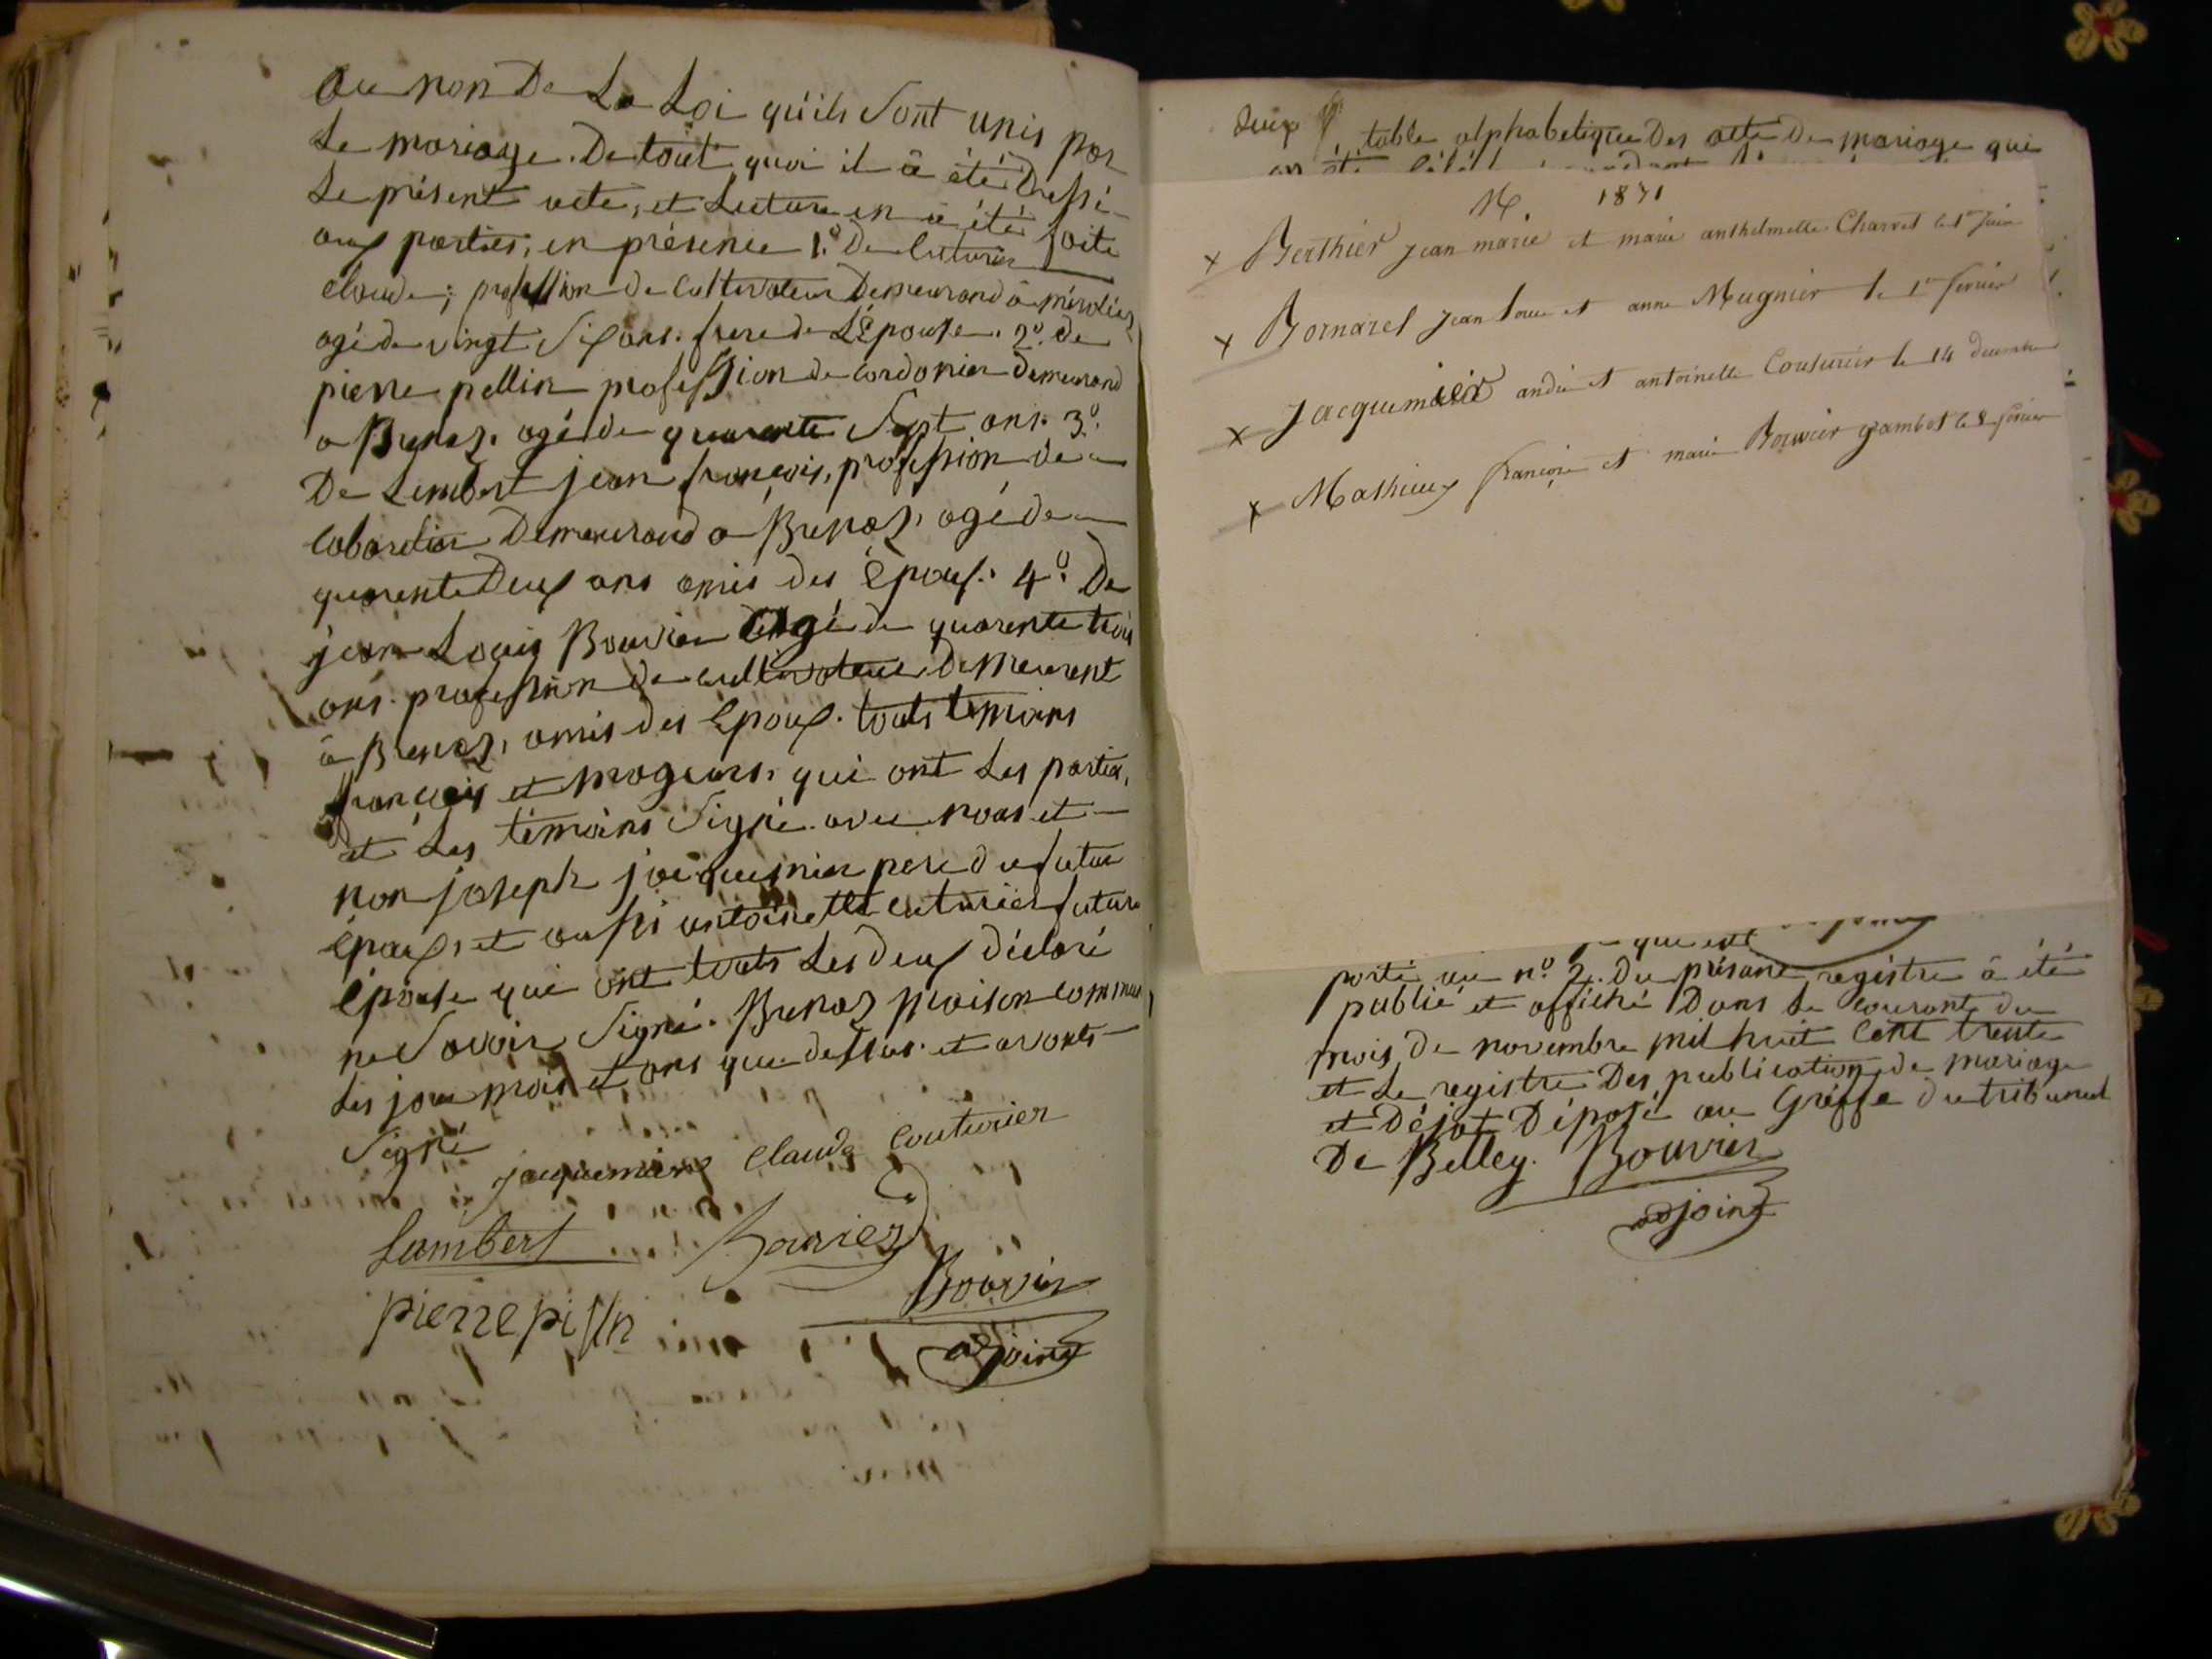 au non De La Loi qu'ils Sont unis par
Le mariage. De tout quoi il a été Dressé
Le présent acte, et Lecture en a été faite
aux parties, en présence 1.º De Cuturier
claude; profession de Cultivateur Demeurand à
agé de vingt Six ans. frere de L'Épouse. 2º. de
pierre pellin profession de Cordonier demeurand
a Brenaz, agé de quarante Sept ans. 3º.
De Lembert jean françois, profession de
Cabaretier Demeurand a Brenaz, agé de
quarente Deux ans amis des Époux. 4º. De
jean Louis Bouvier Agé de quarente trois
ans. profession de cultivateur Demeurent
à Brenaz, amis des Époux. touts temoins
françois et mageurs, qui ont Les parties,
et Les témoins Signé avec nous et
non joseph jacquemier pere du futur
époux, et aussi antoinette cuturier future
Épouse qui ont touts Les deux déclaré
ne Savoir Signé. Brenaz maison commune
Les jour mois et ans que dessus. et avons
Signé
jacquemier claude Couturier
Lambert Bouvier
Bouvier
pierre pellin
adjoint
table alphabetique Des acte De mariage qui
M 1831
x Berthier jean marie et marie anthelmette Charvet le 1er juin
x Bornarel jean Louis et anne Mugnier le 1er fevrier
x Jacquemier andré et antoinette Couturier le 14 decembre
x Mathieux françois et marie Bouvier grambot le 8 fevrier
que est
porté au nº 2. Du présant registre à été
publié et affiché Dans Le courant du
mois de novembre mil huit Cent trente
et Le registre Des publication de mariage
et Déjat Déposé au Greffe du tribunal
De Belley. Bouvier
adjoint